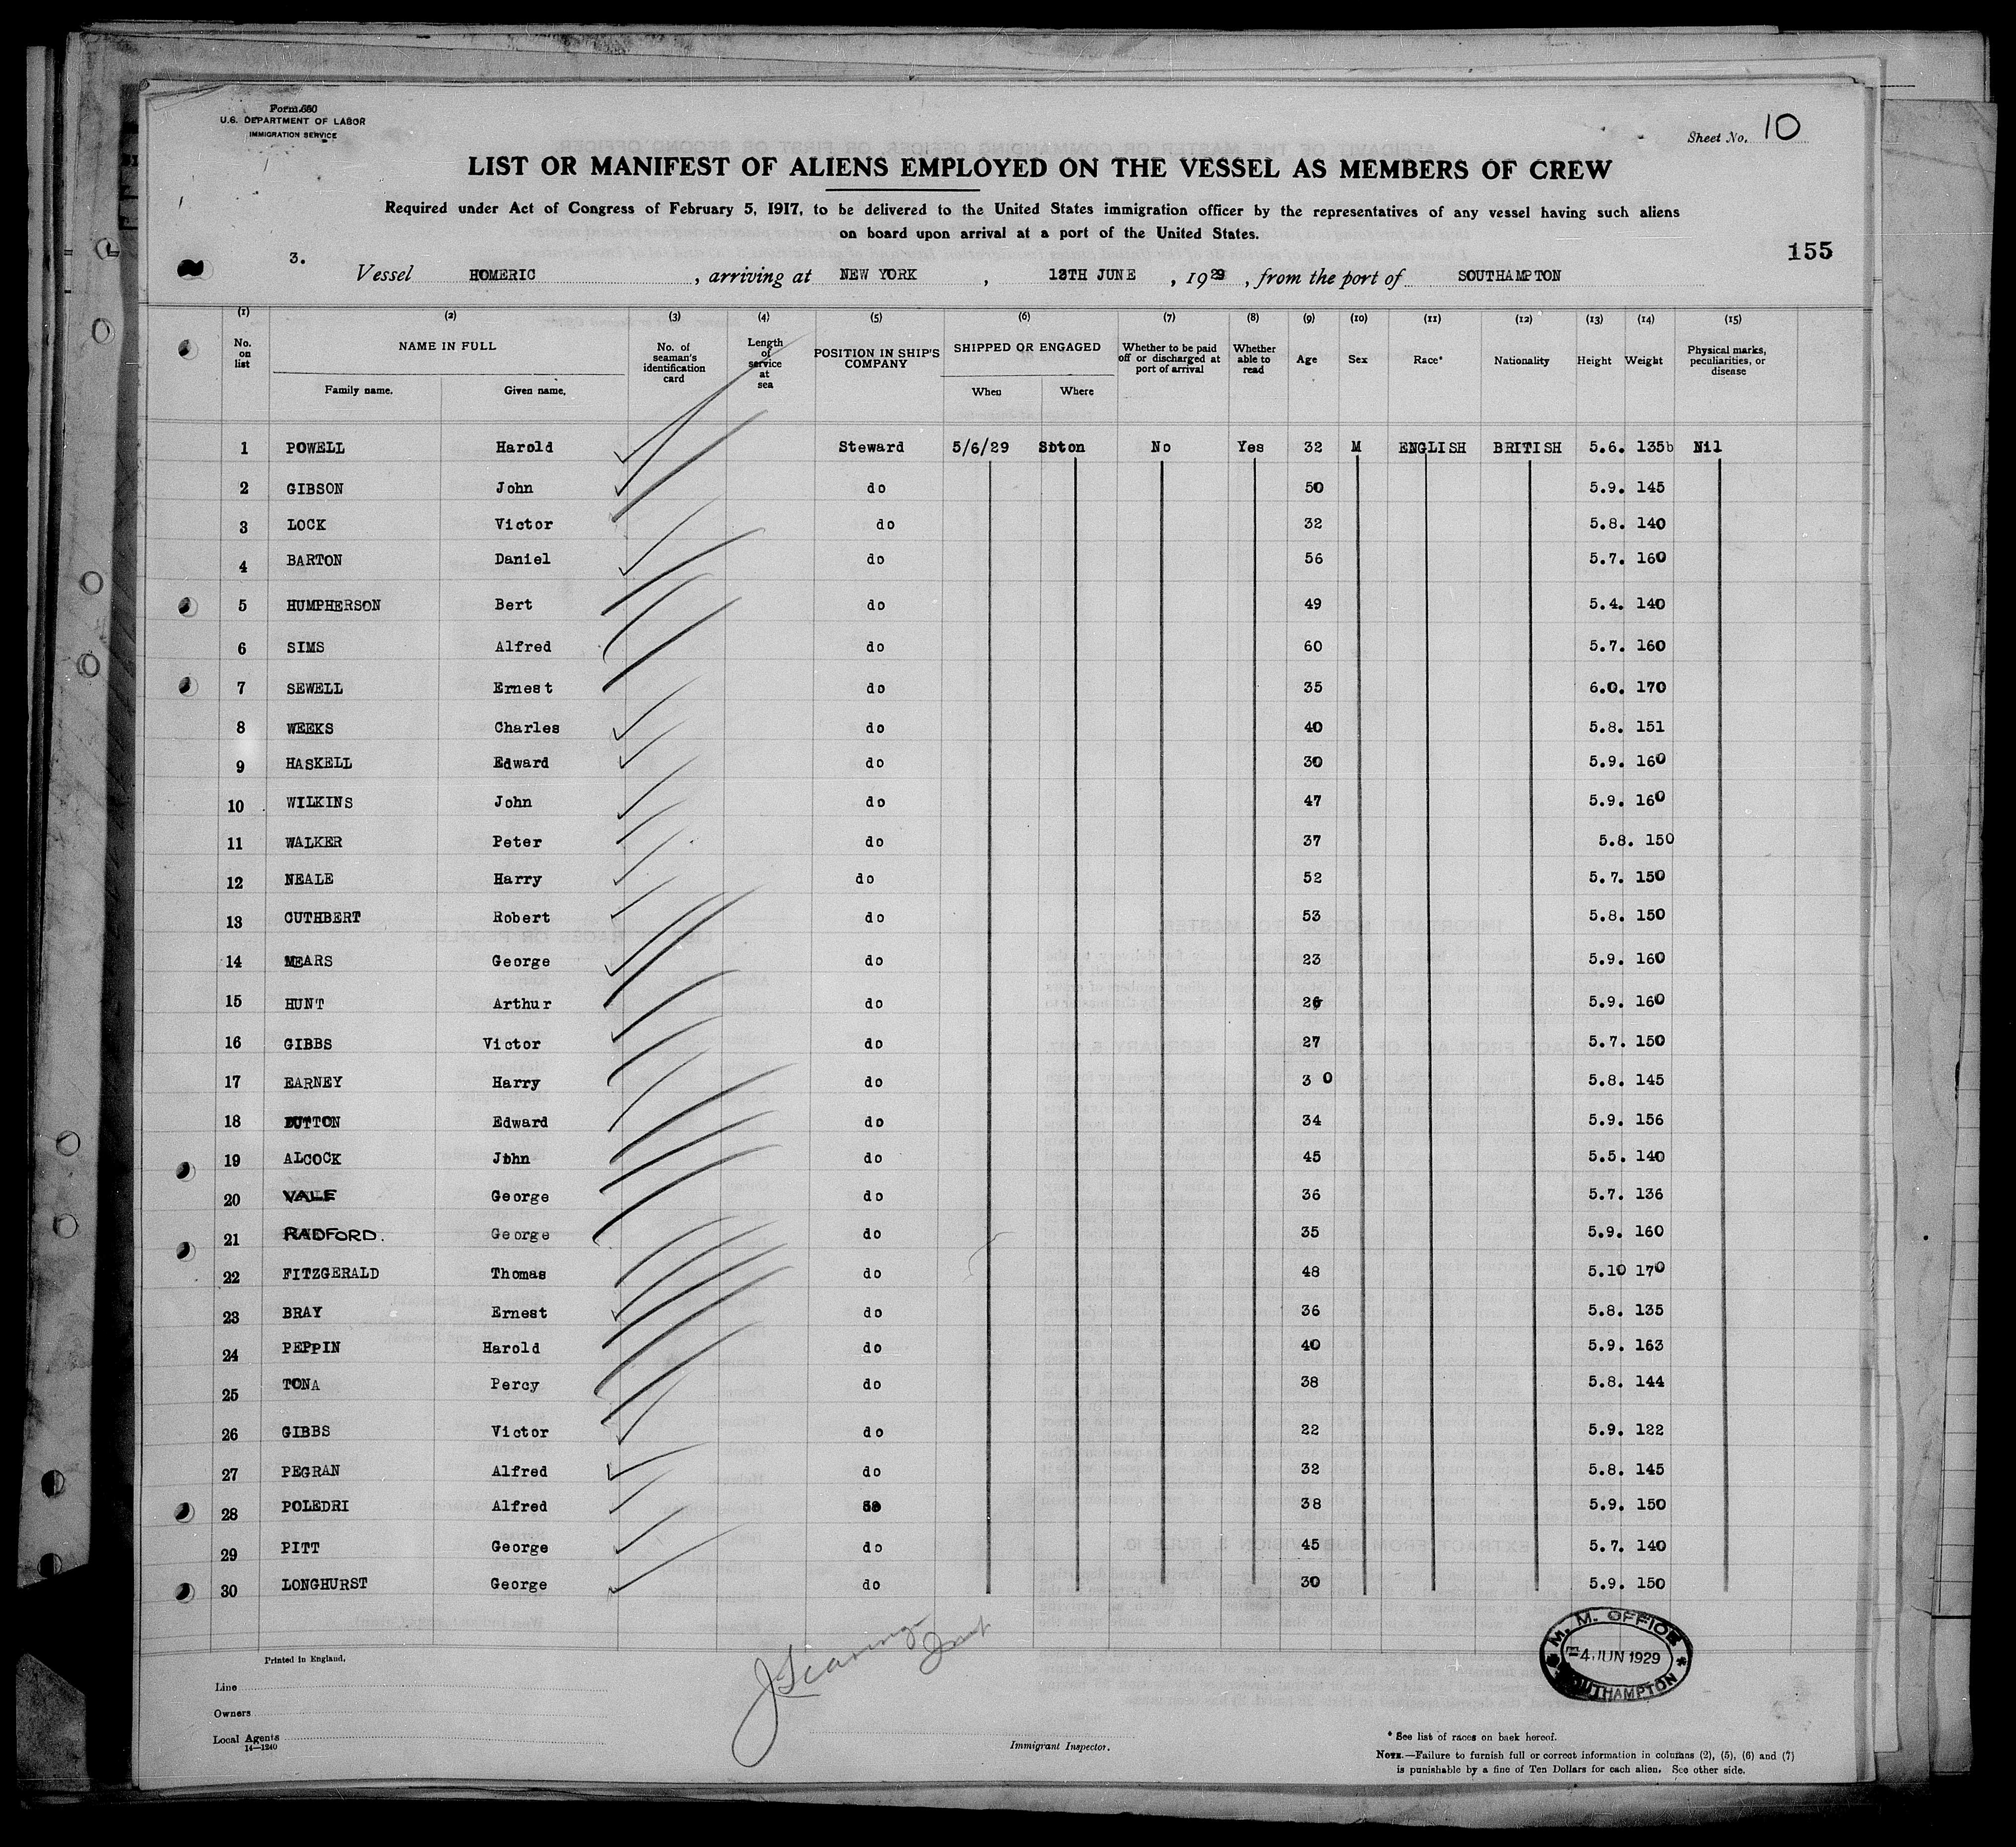 Form 680
U.S. DEPARTMENT OF LABOR
IMMIGRATION SERVICE
Sheet No. 10
LIST OR MANIFEST OF ALIENS EMPLOYED ON THE VESSEL AS MEMBERS OF CREW
Required under Act of Congress of February 5, 1917, to be delivered to the United States immigration officer by the representatives of any vessel having such aliens
on board upon arrival at a port of the United States.
155
3.
Vessel HOMERIC, arriving at NEW YORK, 12TH JUNE, 1929, from the port of SOUTHAMPTON
(1) (2) (3) (4) (5) (6) (7) (8) (9) (10) (11) (12) (13) (14) (15)
No. on list NAME IN FULL Family name. Given name. No. of seaman's identification card Length of service at sea POSITION IN SHIP'S COMPANY SHIPPED OR ENGAGED When Where Whether to be paid off or discharged at port of arrival Whether able to read Age Sex Race* Nationality Height Weight Physical marks, peculiarities, or disease
1 POWELL Harold Steward 5/6/29 Soton No Yes 32 M ENGLISH BRITISH 5.6. 135b Nil
2 GIBSON John do 50 5.9. 145
3 LOCK Victor do 32 5.8. 140
4 BARTON Daniel do 56 5.7. 160
5 HUMPHERSON Bert do 49 5.4. 140
6 SIMS Alfred do 60 5.7. 160
7 SEWELL Ernest do 35 6.0. 170
8 WEEKS Charles do 40 5.8. 151
9 HASKELL Edward do 30 5.9. 160
10 WILKINS John do 47 5.9. 160
11 WALKER Peter do 37 5.8. 150
12 NEALE Harry do 52 5.7. 150
13 CUTHBERT Robert do 53 5.8. 150
14 MEARS George do 23 5.9. 160
15 HUNT Arthur do 5.9. 160
16 GIBBS Victor do 27 5.7. 150
17 EARNEY Harry do 30 5.8. 145
18 DUTTON Edward do 34 5.9. 156
19 ALCOCK John do 45 5.5. 140
20 VALE George do 36 5.7. 136
21 RADFORD. George do 35 5.9. 160
22 FITZGERALD Thomas do 48 5.10 170
23 BRAY Ernest do 36 5.8. 135
24 PEPPIN Harold do 40 5.9. 163
25 TONA Percy do 38 5.8. 144
26 GIBBS Victor do 22 5.9. 122
27 PEGRAN Alfred do 32 5.8. 145
28 POLEDRI Alfred do 38 5.9. 150
29 PITT George do 45 5.7. 140
30 LONGHURST George do 30 5.9. 150
M. M. OFFICE
-4 JUN 1929
SOUTHAMPTON
Printed in England.
Line
Owners
Local Agents
14—1240
Immigrant Inspector.
* See list of races on back hereof.
NOTE.—Failure to furnish full or correct information in columns (2), (5), (6) and (7)
is punishable by a fine of Ten Dollars for each alien. See other side.